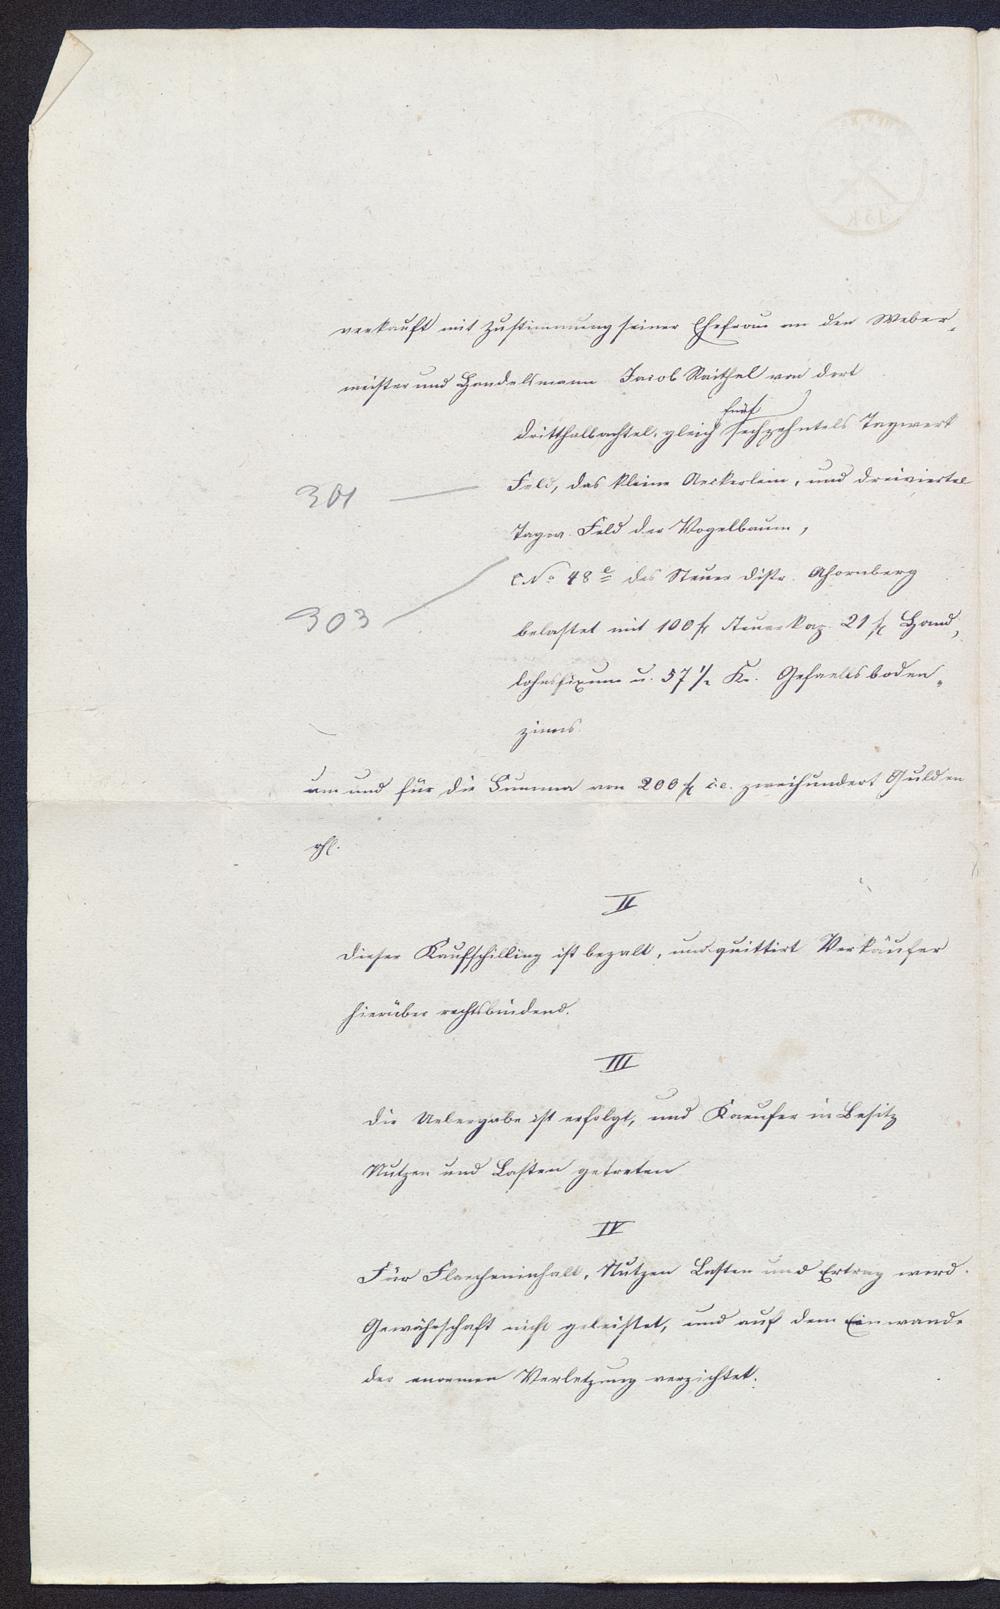 verkauft mit Zustimmung seiner Ehefrau an den Weber-
meister und Handelsmann Jacob Raithel von dort
fünf
dritthalbachtel, gleich sechzehntels Tagwerk
301 Feld, das kleine Aeckerlein, und dreiviertel
Tagw. Feld der Vogelbaum,
C No 48 e des Steuer Distr. Ahornberg
303
belastet mit 100 f Steuerkap. 21 f Hand„
lohnsfixum u. 57 1/2 Kr. Gefaellsboden„
zinns
um und für die Summa von 200 f i.e. zweihundert Gulden
rhl.
II
Dieser Kaufschilling ist bezalt, und quittirt Verkäufer
hierüber rechtsbindend.
III
Die Uebergabe ist erfolgt, und Kaeufer in Besitz
Nutzen und Lasten getreten
IV
Für Flaecheninhalt, Nutzen Lasten und Ertrag wird
Gewährschaft nicht geleistet, und auf dem Einwande
der enormen Verletzung verzichtet.